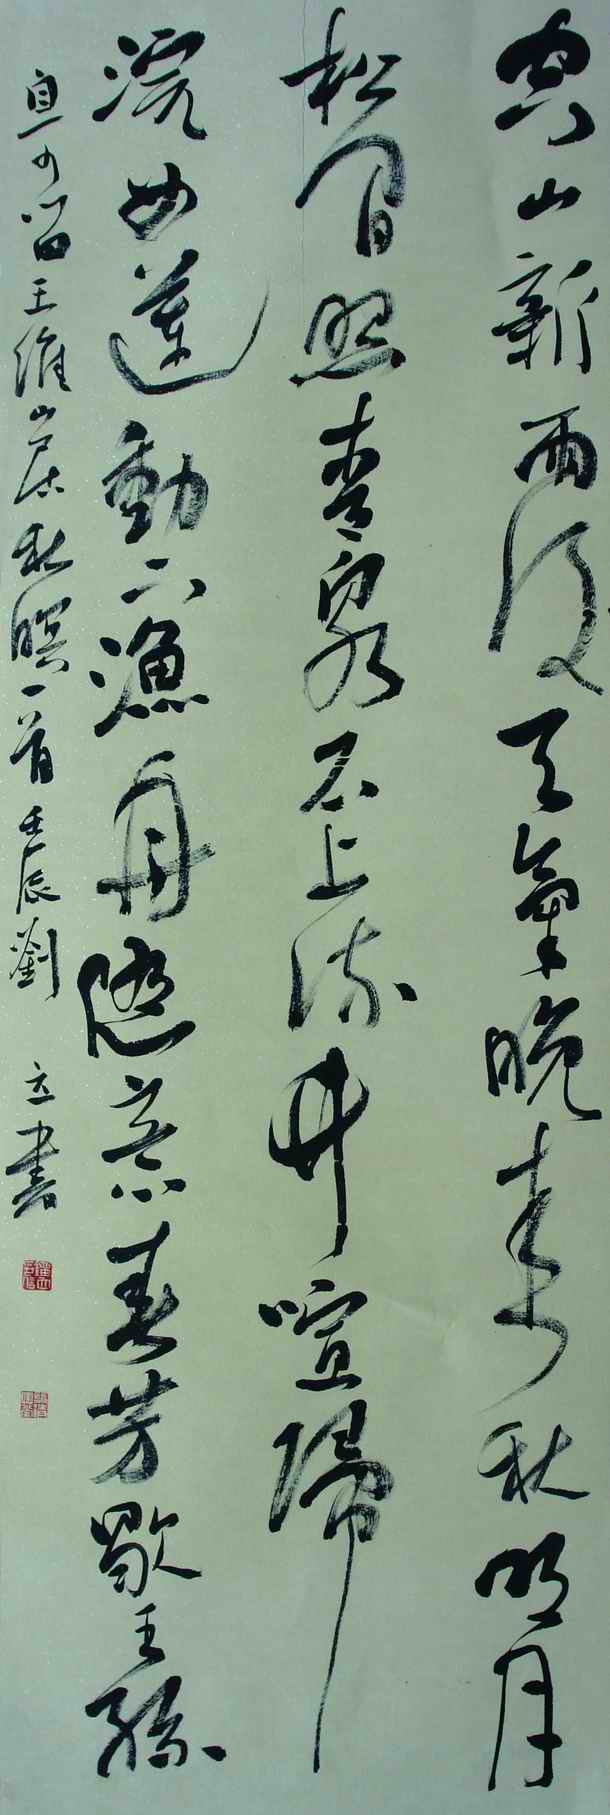 空山新雨後天氣晚來秋明月
松間照青泉石上流竹喧歸
浣女蓮動下漁舟隨意春芳歇王孫
自可留王維山居秋暝一首壬辰劉立書